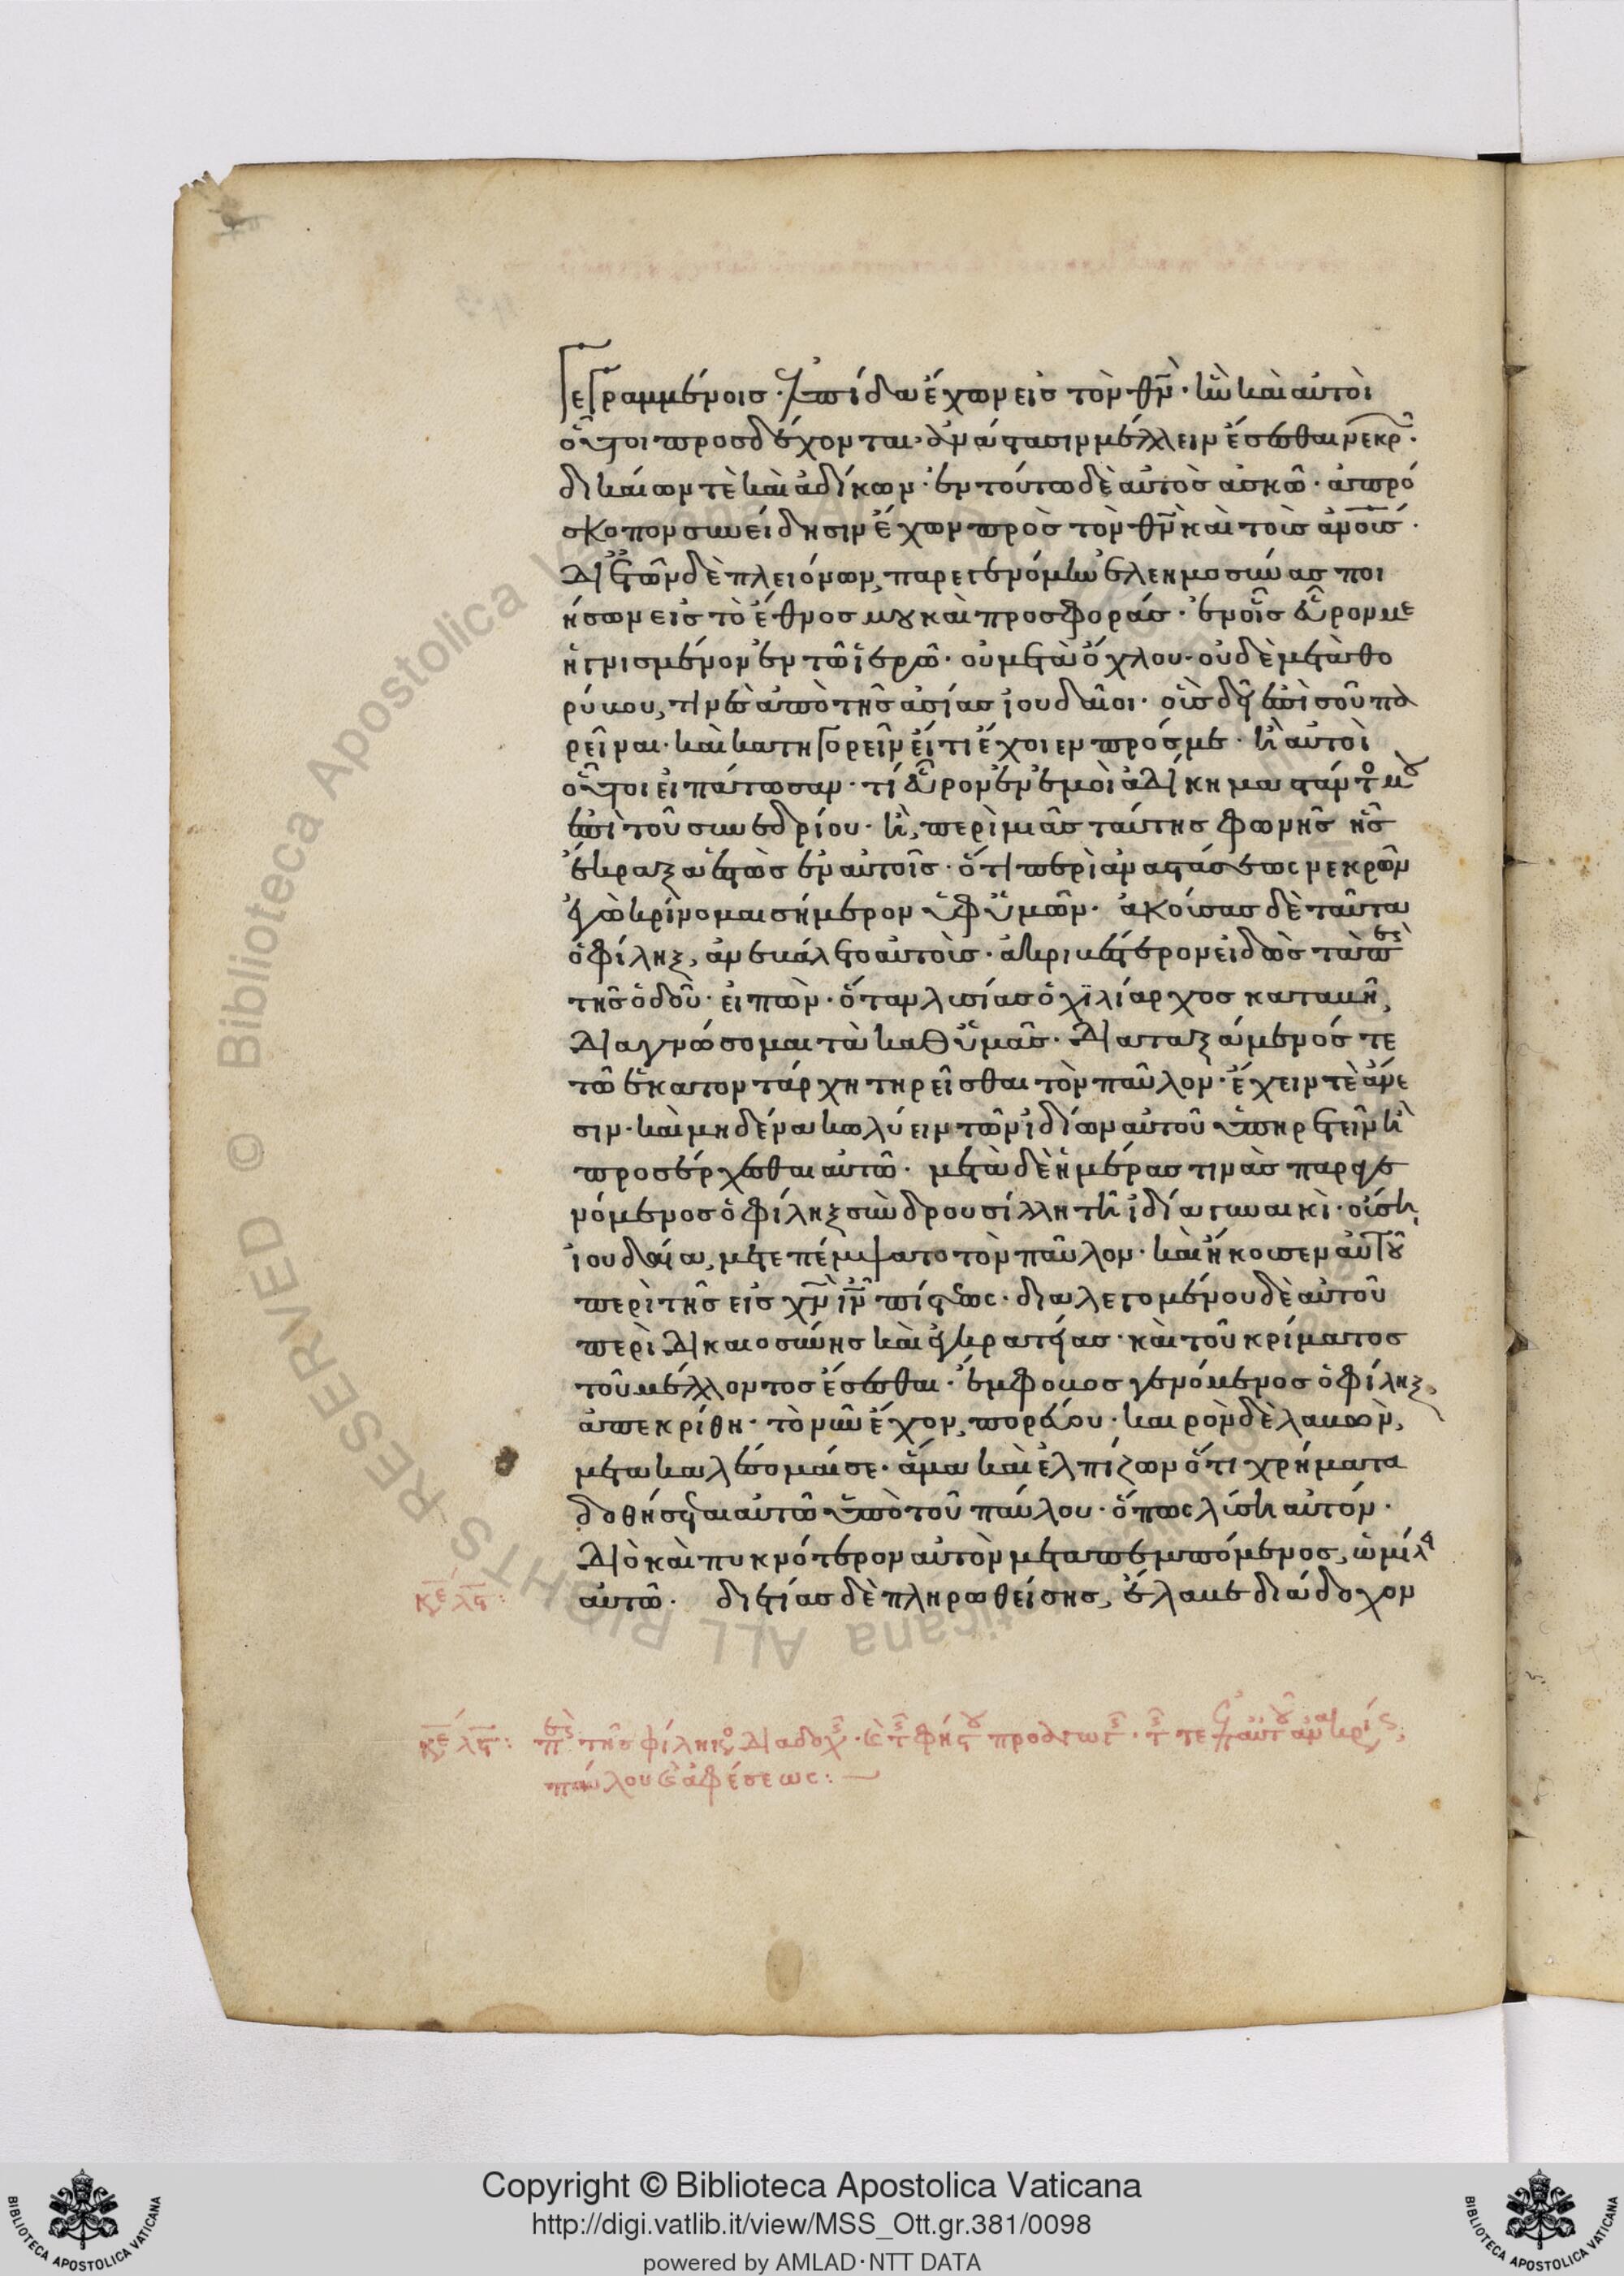 γεγραμμένοις· ἐλπίδα ἔχων εἰς τὸν θν̅· ἣν καὶ αὐτοὶ
οὗτοι προσδέχονται· ἀνάστασιν μέλλειν ἔσεσθαι νεκρ̅·
δικαίων τὲ καὶ ἀδίκων· ἐν τούτω δὲ αὐτὸς ἀσκῶ· ἀπρό
σκοπον συνείδησιν ἔχων πρὸς τὸν θν̅ καὶ τοὺς ἀνο̅υς·
Δι ἐτῶν δὲ πλειόνων, παρεγενόμην ἐλεημοσύνας ποι
ήσων εἰς τὸ ἔθνος μου καὶ προσφοράς· ἐν οἷς εὗρον με
ἡγνισμένον ἐν τῶ ἱερῶ· οὐ μετὰ ὄχλου· οὐδὲ μετὰ θο
ρύβου, τινὲς ἀπὸ τῆς ἀσίας ἰουδαῖοι· οὓς δεῖ ἐπὶ σοῦ πα
ρεῖναι· καὶ κατηγορεῖν εἴ τι ἔχοιεν πρός με· ἢ αὐτοὶ
οὗτοι εἰπάτωσαν· τί εὗρον ἐν ἐμοὶ ἀδίκημα στάντο μου
ἐπὶ τοῦ συνεδρίου· ἢ, περὶ μιᾶς ταύτης φωνῆς ἧς
ἔκραξα ἑστὼς ἐν αὐτοῖς· ὅτι περὶ ἀναστάσεως νεκρῶν
ἐγὼ κρίνομαι σήμερον ὑφ ὑμῶν· ἀκούσας δὲ ταῦτα
ὁ φίληξ, ἀνεβάλετο αὐτοὺς· ἀκριβέστερον εἰδὼς τὰ π
τῆς ὁδοῦ· εἰπὼν· ὅταν λυσίας ὁ χϊλίαρχος καταβῆ,
Διαγνώσομαι τὰ καθ ὑμᾶς· Διαταξάμενός τε
τῶ ἑκατοντάρχη τηρεῖσθαι τὸν παῦλον· ἔχειν τὲ ἄνε
σιν· καὶ μηδένα κωλύειν τῶν ἰδίων αὐτοῦ ὑπηρετεῖν ἢ
προσέρχεσθαι αὐτῶ· μετὰ δὲ ἡμέρας τινὰς παραγε
νόμενος ὁ φίληξ σὺν δρουσίλλη τῆ ἰδία γυναικὶ· οὔση
ἰουδαία, μετεπέμψατο τὸν παῦλον· καὶ ἤκουσεν αὐτοῦ
περὶ τῆς εἰς χν̅ ιν̅ πίστεως· διαλεγομένου δὲ αὐτοῦ
περὶ δικαιοσύνης καὶ ἐγκρατείας· καὶ τοῦ κρίματος
τοῦ μέλλοντος ἔσεσθαι· ἔμφοβος γενόμενος ὁ φίληξ,
ἀπεκρίθη· τὸ νῦν ἔχον, πορεύου· καιρὸν δὲ λαβὼν,
μετακαλέσομαί σε· ἅμα καὶ ἐλπίζων ὅτι χρήματα
δοθήσεται αὐτῶ ὑπὸ τοῦ παύλου· ὅπως λύση αὐτόν·
Διὸ καὶ πυκνότερον αὐτὸν μεταπεμπόμενος, ὡμίλει
κε λς: αὐτῶ. διετίας δὲ πληρωθείσης, ἔλαβε διάδοχον
κε λς: π τῆς φίληκο διαδοχ· παύλου ἀφέσεως:
Copyright © Biblioteca Apostolica Vaticana
http://digi.vatlib.it/view/MSS_Ott.gr.381/0098
powered by AMLAD·NTT DATA
BIBLIOTECA APOSTOLICA VATICANA
BIBLIOTECA APOSTOLICA VATICANA
Biblioteca Apostolica Vaticana ALL RIGHTS RESERVED ©